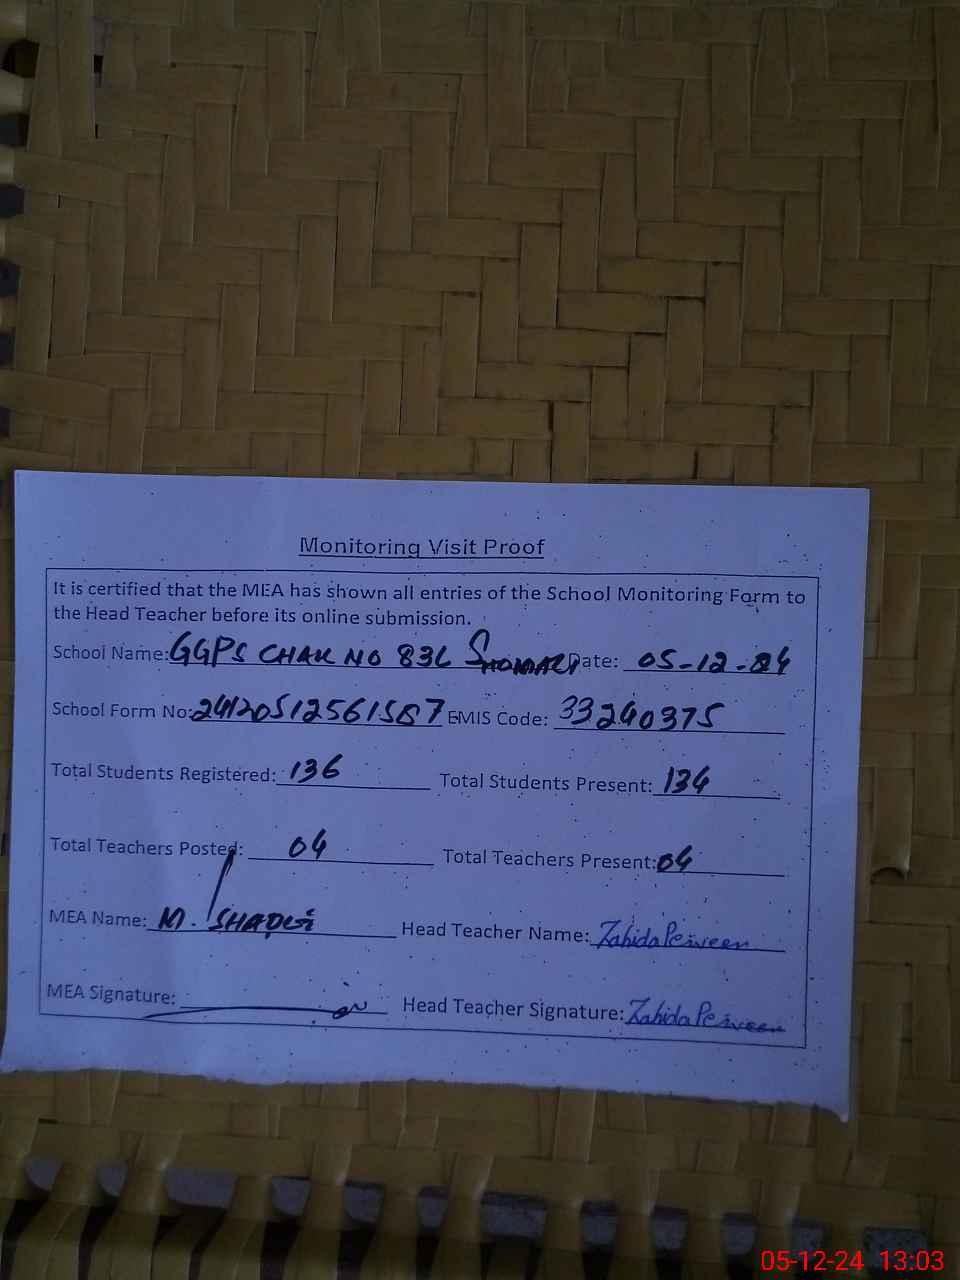 Monitoring Visit Proof
It is certified that the MEA has shown all entries of the School Monitoring Form to
the Head Teacher before its online submission.
School Name: GGPS CHAK NO 83L SHOMALI Date: 05-12-24
School Form No: 24120512561587 EMIS Code: 33240375
Total Students Registered: 136 Total Students Present: 134
Total Teachers Posted: 04 Total Teachers Present: 04
MEA Name: M. Head Teacher Name: Zahida Perveen
MEA Signature: Head Teacher Signature: Zahida Perveen
05-12-24 13:03